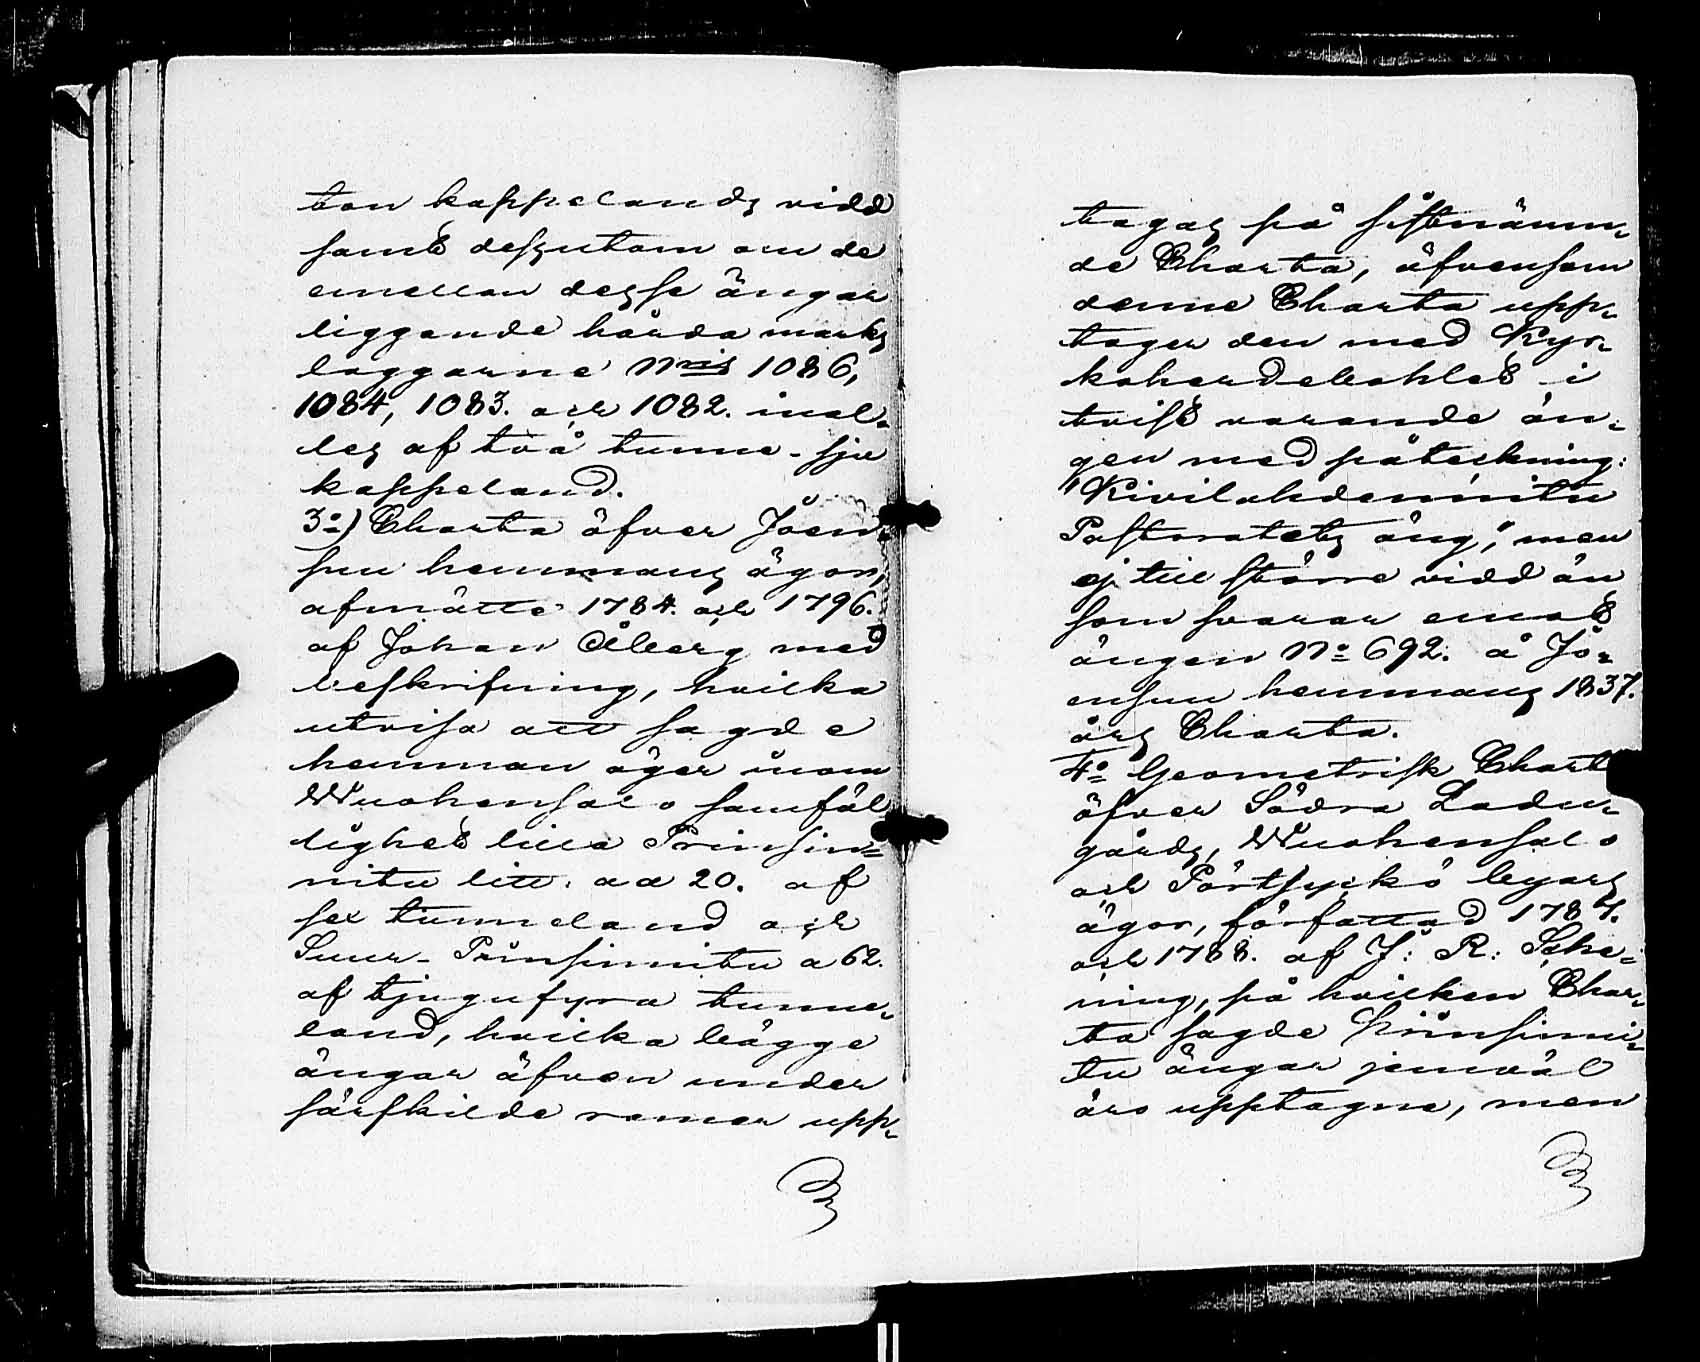 ton kappelands vidd
samt dessutom om de
emellan desse ängar
liggande hårda marks
läggarne Nris 1086,
1084, 1083. och 1082. inal-
les af två tunne- sju
kappeland.
3o) Charta öfver Joen-
suu hemmans ägor,
afmätte 1784. och 1796.
af Johan Åberg med
beskrifning, hvilka
utvisa att sagde
hemman äger inom
Wuohensalo samfäl
lighet lilla Prinsin-
nitu litt. aa 20. af
sex tunneland och
Suur- Prinsinnitu a 62.
af tjugufyra tunne-
land, hvilka bägge
ängar äfven under
särskilde ramar upp-
tagas på sistnämn-
de Charta, äfvensom
denne Charta upp-
tager den med Kyr-
koherdebohlet i
tvist varande än-
gen med påteckning:
"Kivilahdenniitu
Pastoratets äng," men
ej till större vidd än
som svarar emot
ängen No 692. å Jo-
ensuu hemmans 1837.
års Charta.
4o Geometrisk Chart
öfver Södra Ladu-
gårds, Wuohensalo
och Pörtsyckö byars
ägor, författad 1787.
och 1788. af J: R: Sche-
ning, på hvilken Char-
ta sagde Prinsinni-
tu ängar jemväl
äro upptagne, men